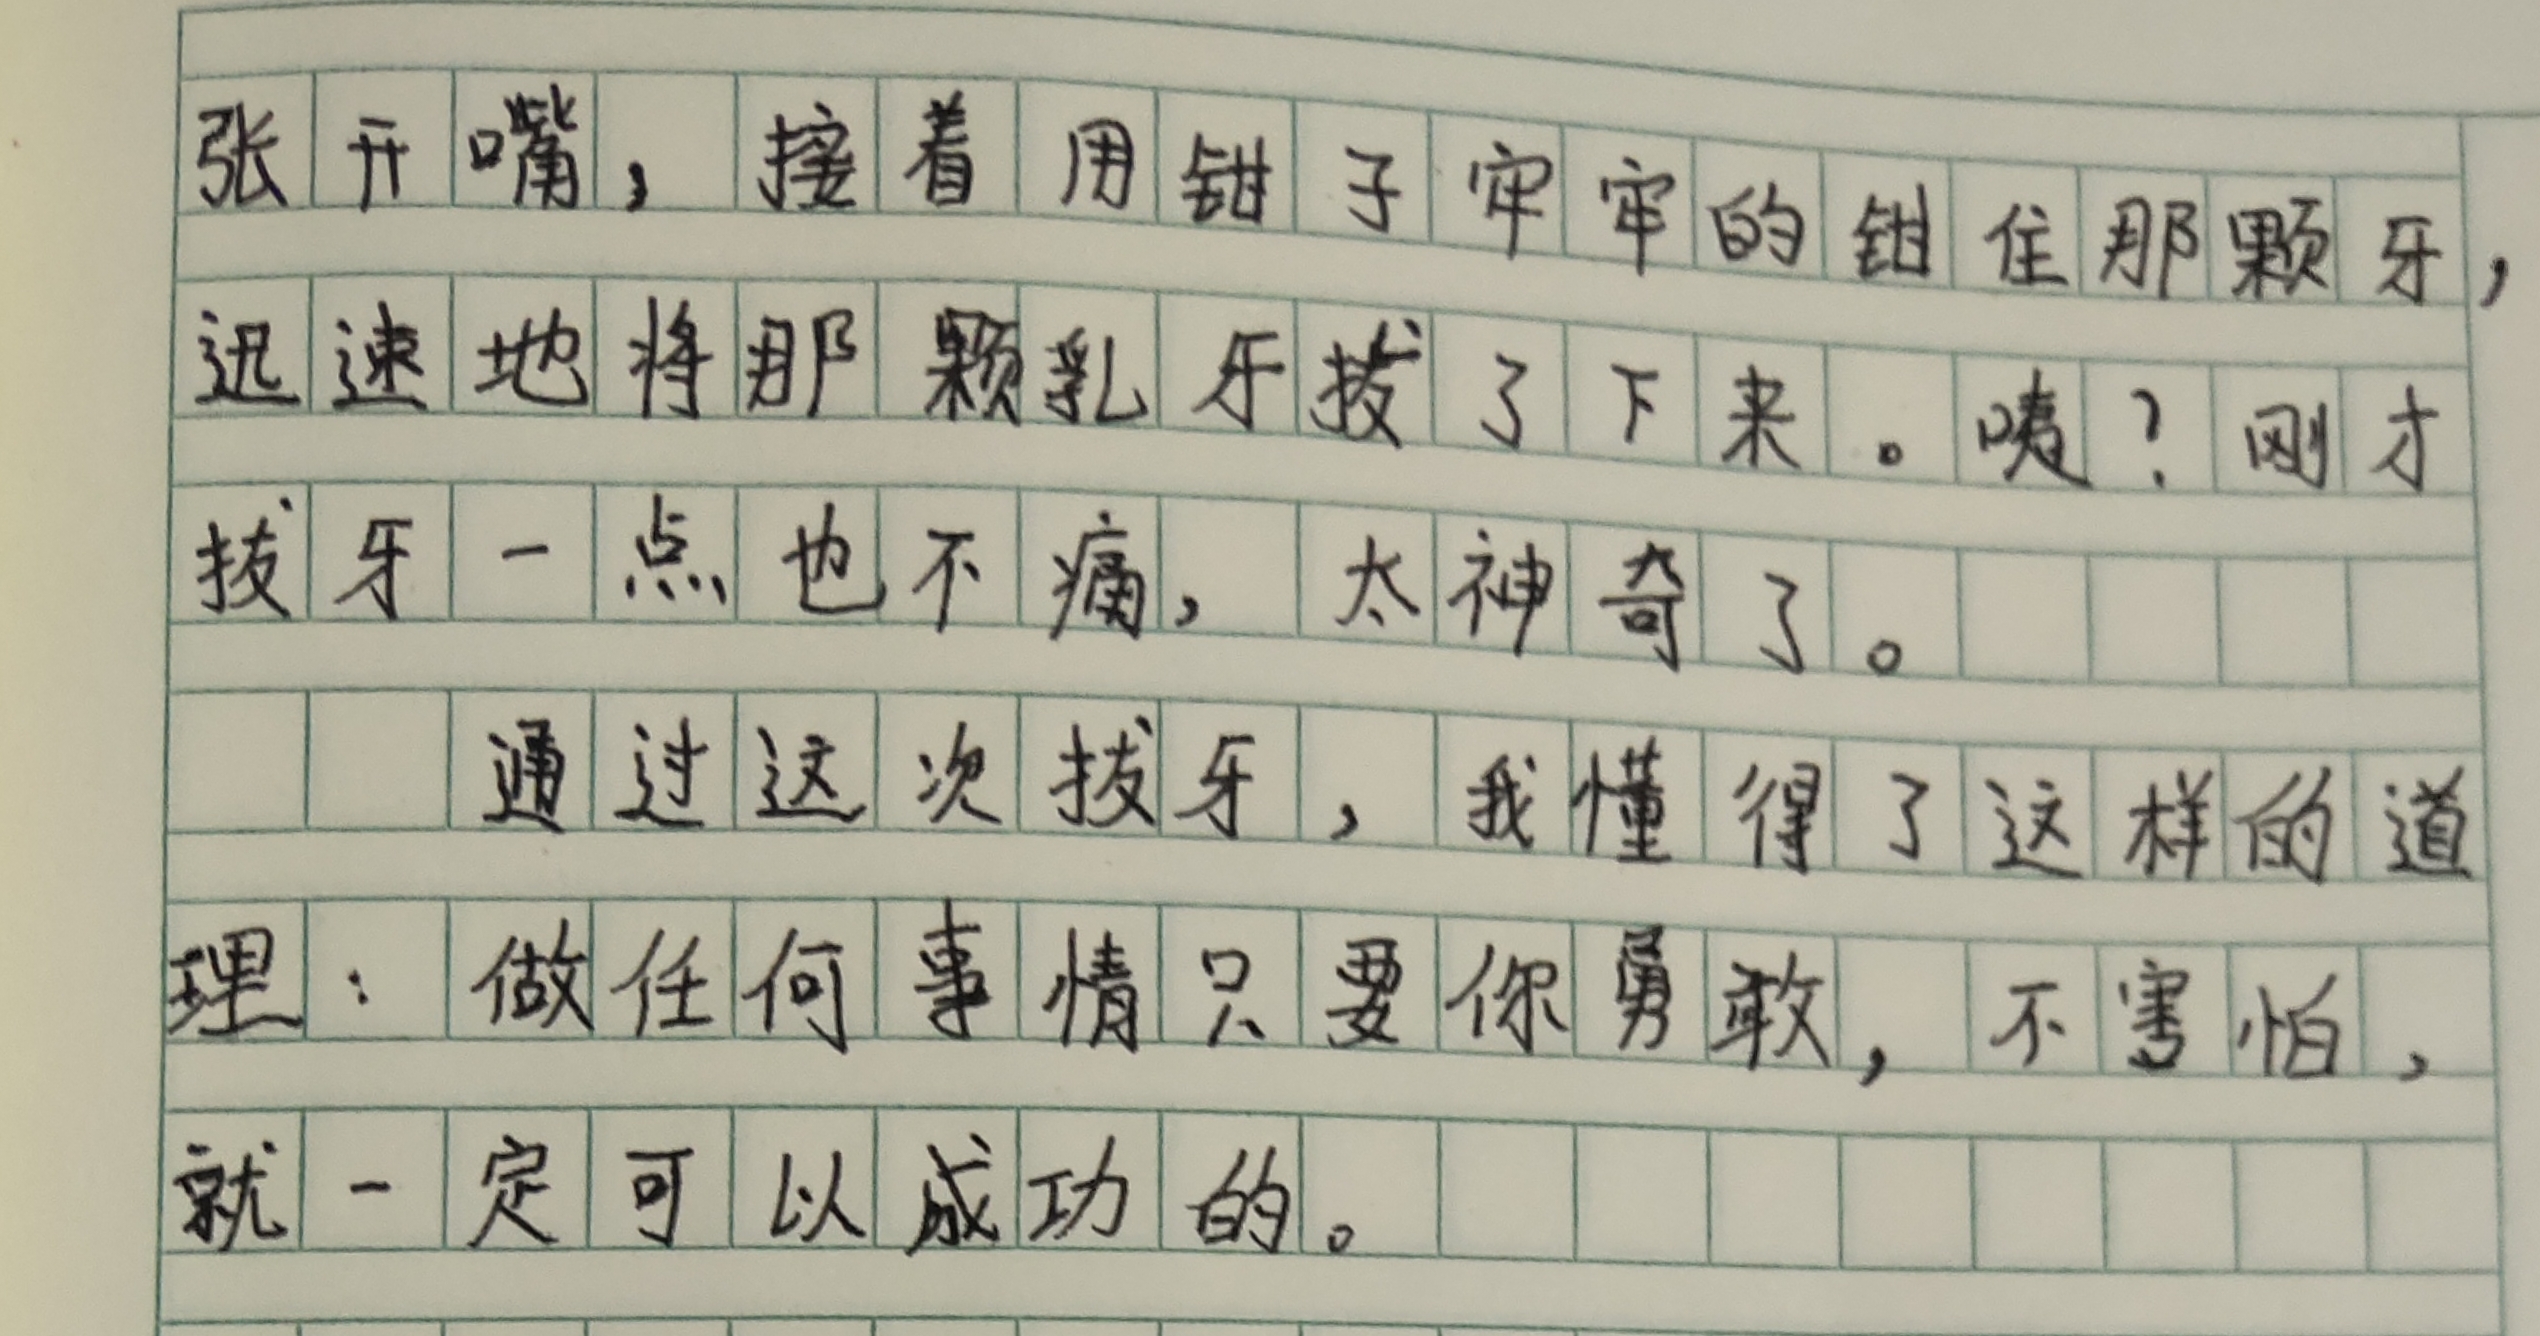 张开嘴，接着用钳子牢牢的钳住那颗牙，
迅速地将那颗乳牙拔了下来。咦？刚才
拔牙一点也不痛，太神奇了。
通过这次拔牙，我懂得了这样的道
理：做任何事情只要你勇敢，不害怕，
就一定可以成功的。